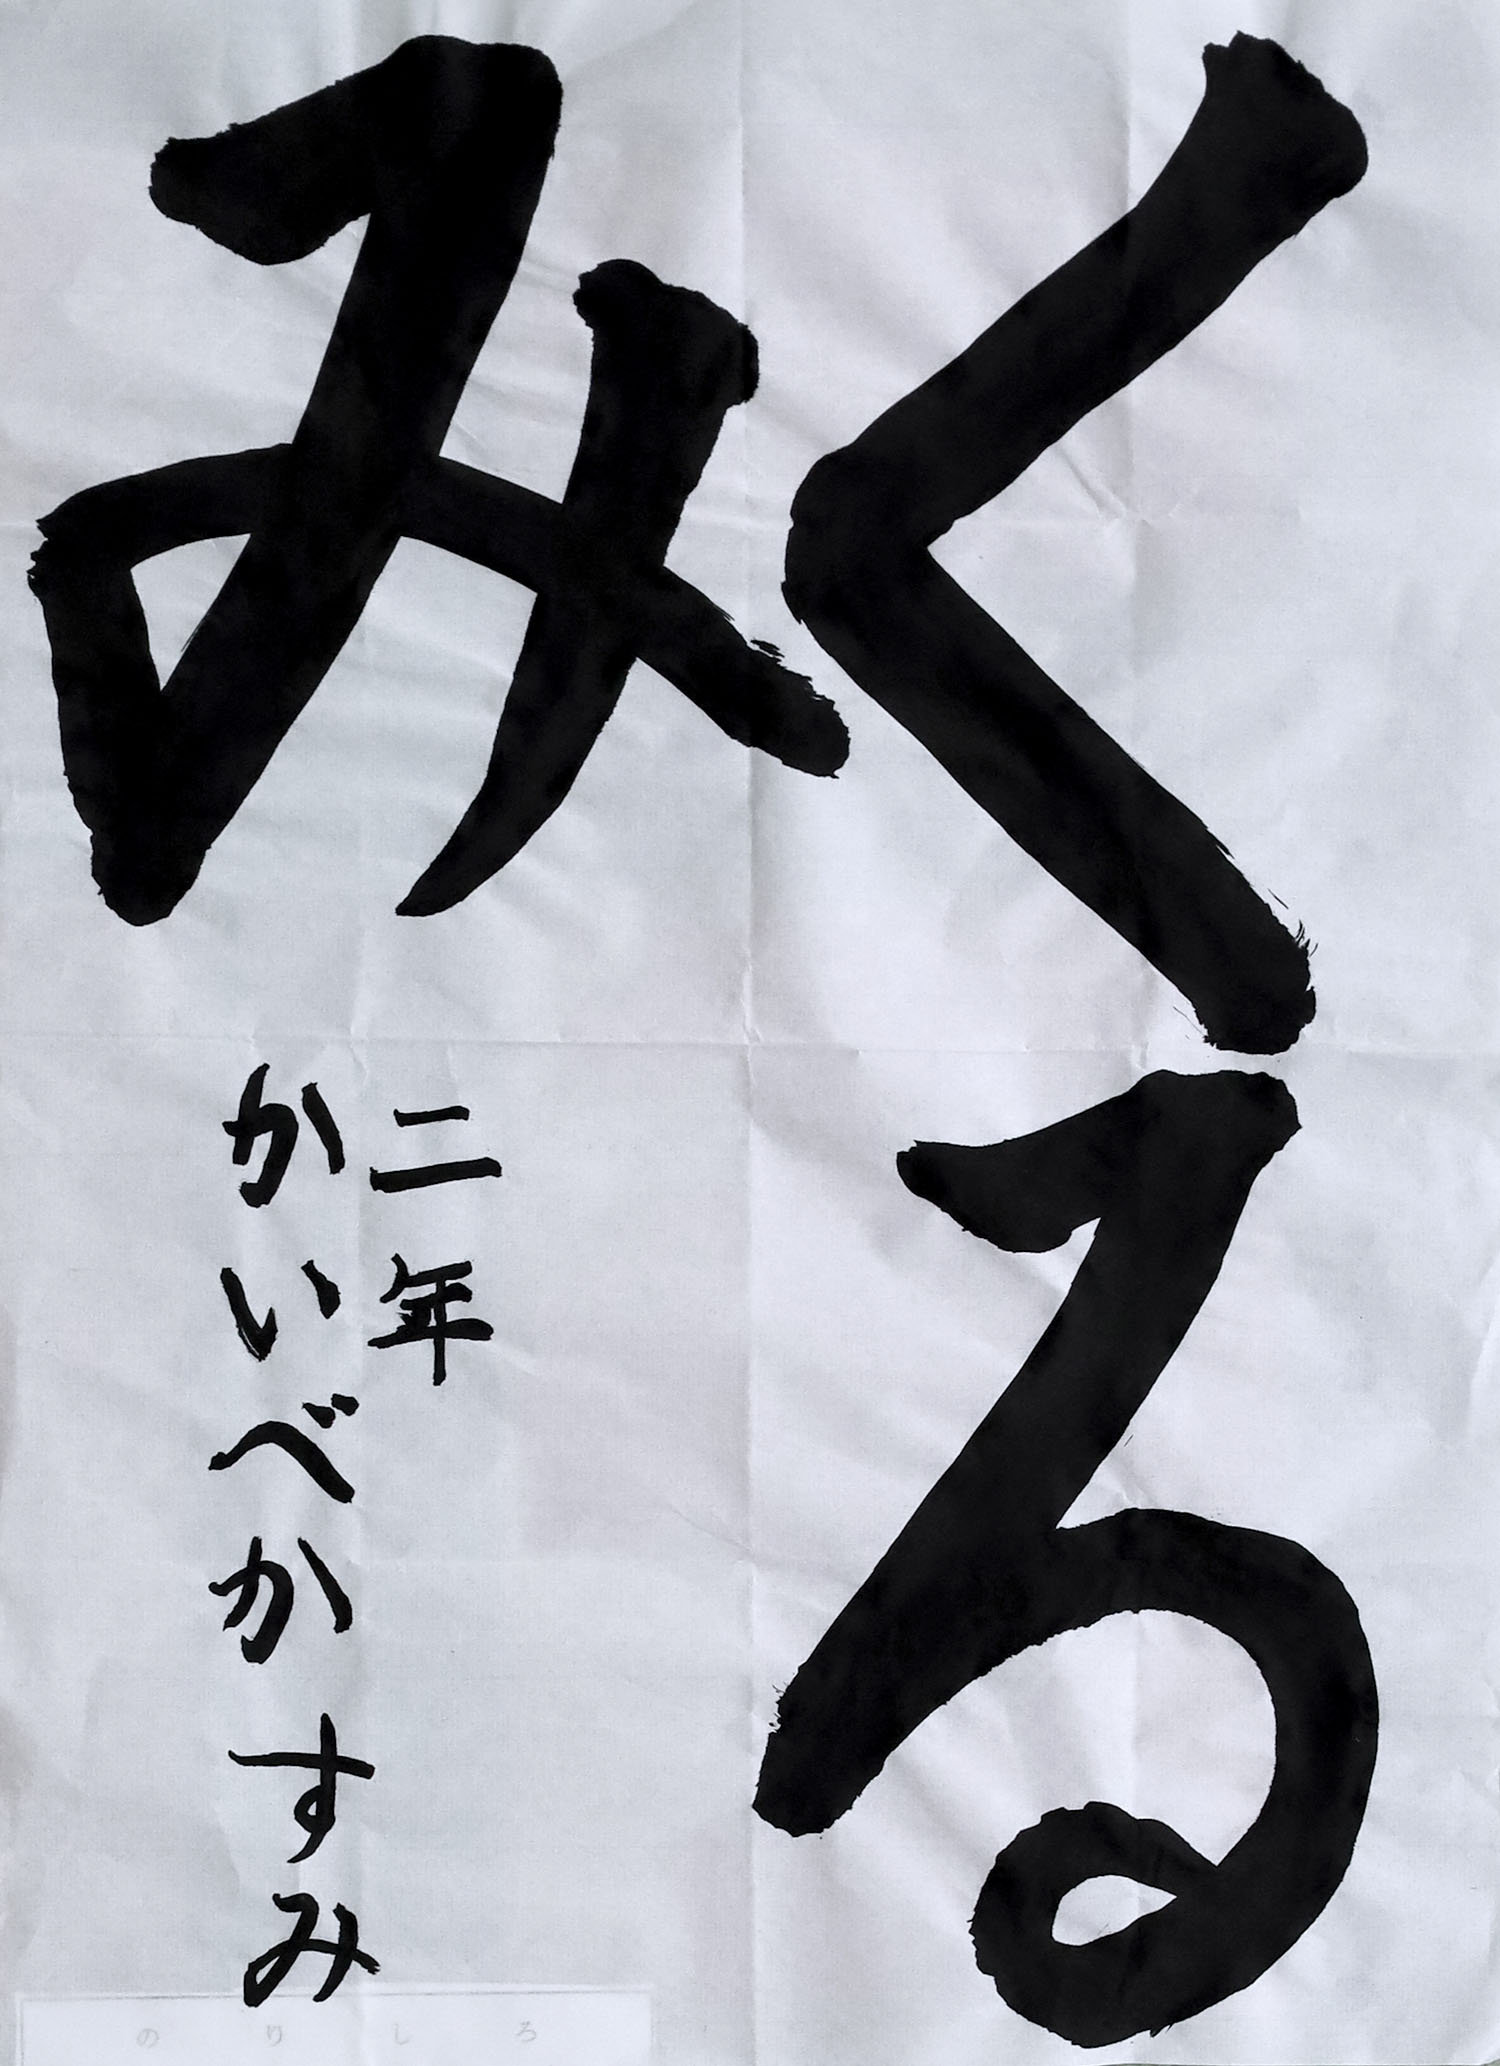 くる
み
二年
かいべかすみ
のりしろ